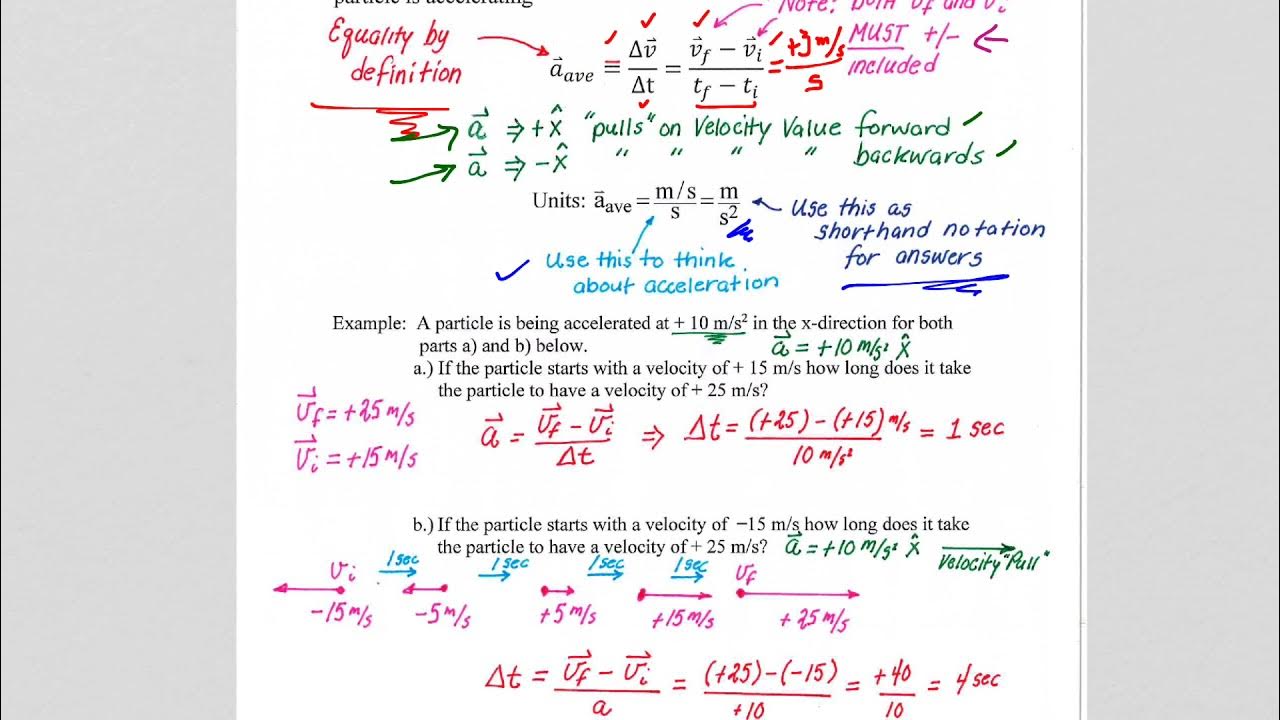 particle is accelerating
Note: both v⃗f and v⃗i
Equality by
definition
MUST +/-
included
a⃗ave ≡ Δv⃗/Δt = (v⃗f − v⃗i)/(tf − ti) = +3 m/s / s
a⃗ ⇒ +x̂ "pulls" on Velocity Value forward
a⃗ ⇒ −x̂ " " " " backwards
Units: a⃗ave = (m/s)/s = m/s²
Use this as
shorthand notation
for answers
Use this to think
about acceleration
Example: A particle is being accelerated at + 10 m/s² in the x-direction for both
parts a) and b) below.
a⃗ = +10 m/s² x̂
a.) If the particle starts with a velocity of + 15 m/s how long does it take
the particle to have a velocity of + 25 m/s?
v⃗f = +25 m/s
v⃗i = +15 m/s
a⃗ = (v⃗f − v⃗i)/Δt ⇒ Δt = ((+25) − (+15) m/s)/(10 m/s²) = 1 sec
b.) If the particle starts with a velocity of −15 m/s how long does it take
the particle to have a velocity of + 25 m/s? a⃗ = +10 m/s² x̂
Velocity "Pull"
vi 1sec 1sec 1sec 1sec vf
−15 m/s −5 m/s +5 m/s +15 m/s +25 m/s
Δt = (v⃗f − v⃗i)/a = ((+25) − (−15))/+10 = +40/10 = 4 sec